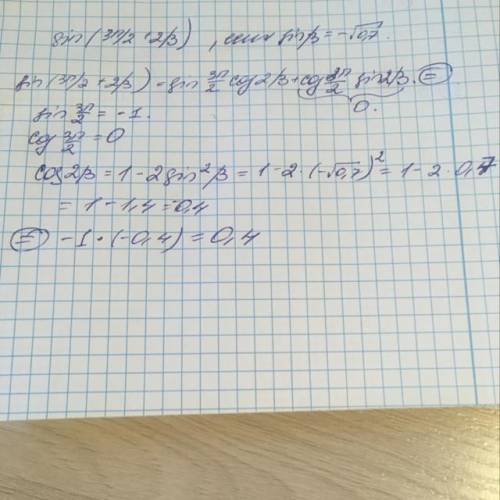 sin(3π/2+2β), если sinβ=-√0,7.
sin(3π/2+2β)=sin 3π/2 cos2β+cos 3π/2 sin2β. =
0.
sin 3π/2 = -1.
cos 3π/2 = 0
cos2β = 1-2sin²β = 1-2·(-√0,7)² = 1-2·0,7
= 1-1,4=-0,4
= -1·(-0,4)=0,4